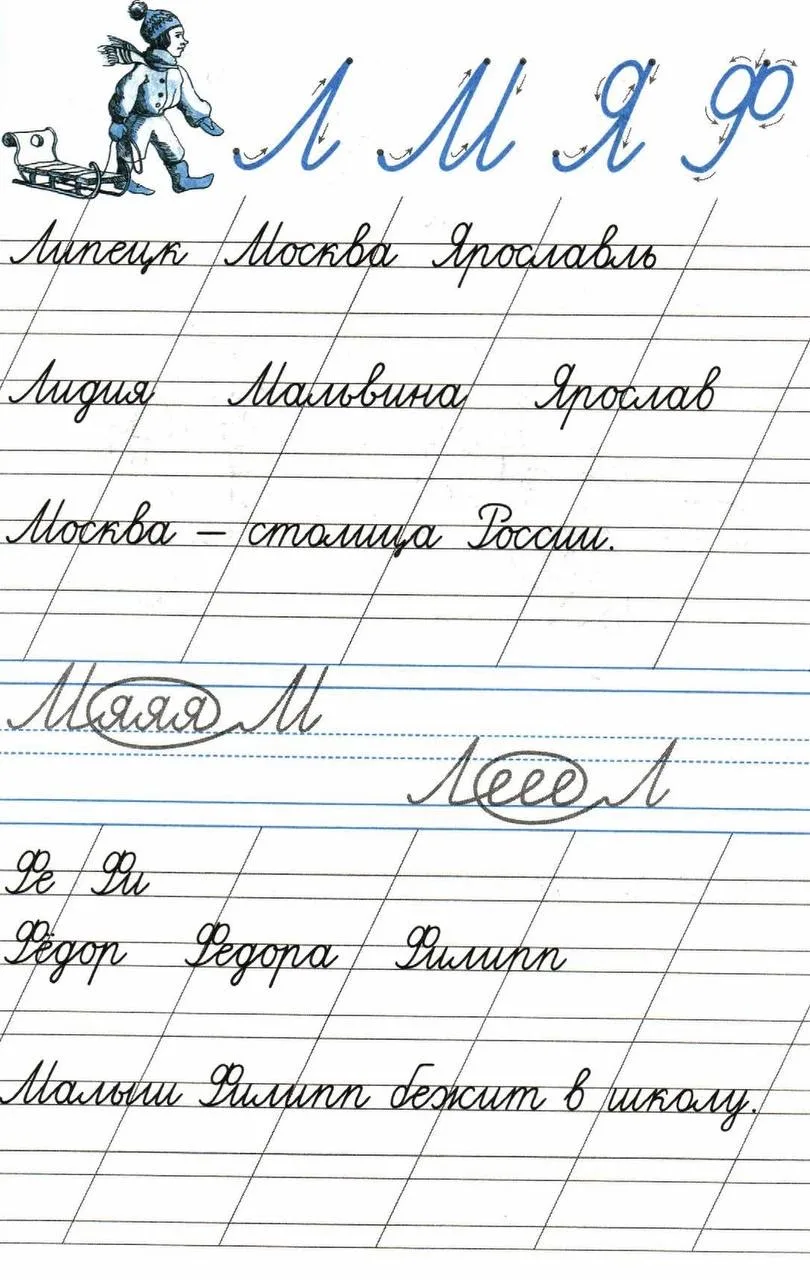 Л М Я Ф
Липецк Москва Ярославль
Лидия Мальвина Ярослав
Москва – столица России.
Мяяя М
Леее Л
Фе Фи
Фёдор Федора Филипп
Малыш Филипп бежит в школу.